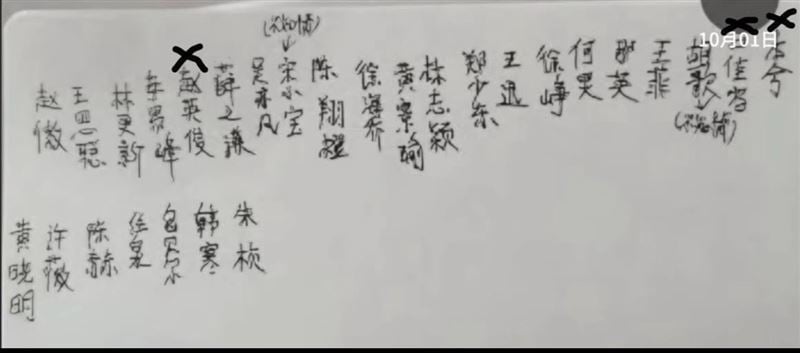 10月01日
赵薇
王思聪
林更新
赵英俊
薛之谦
吴亦凡
(不知情)
宋小宝
陈翔
徐海乔
黄景瑜
林志颖
郑少东
王迅
徐峥
何炅
那英
王菲
胡歌
(不知情)
黄晓明
许薇
陈赫
韩寒
朱桢